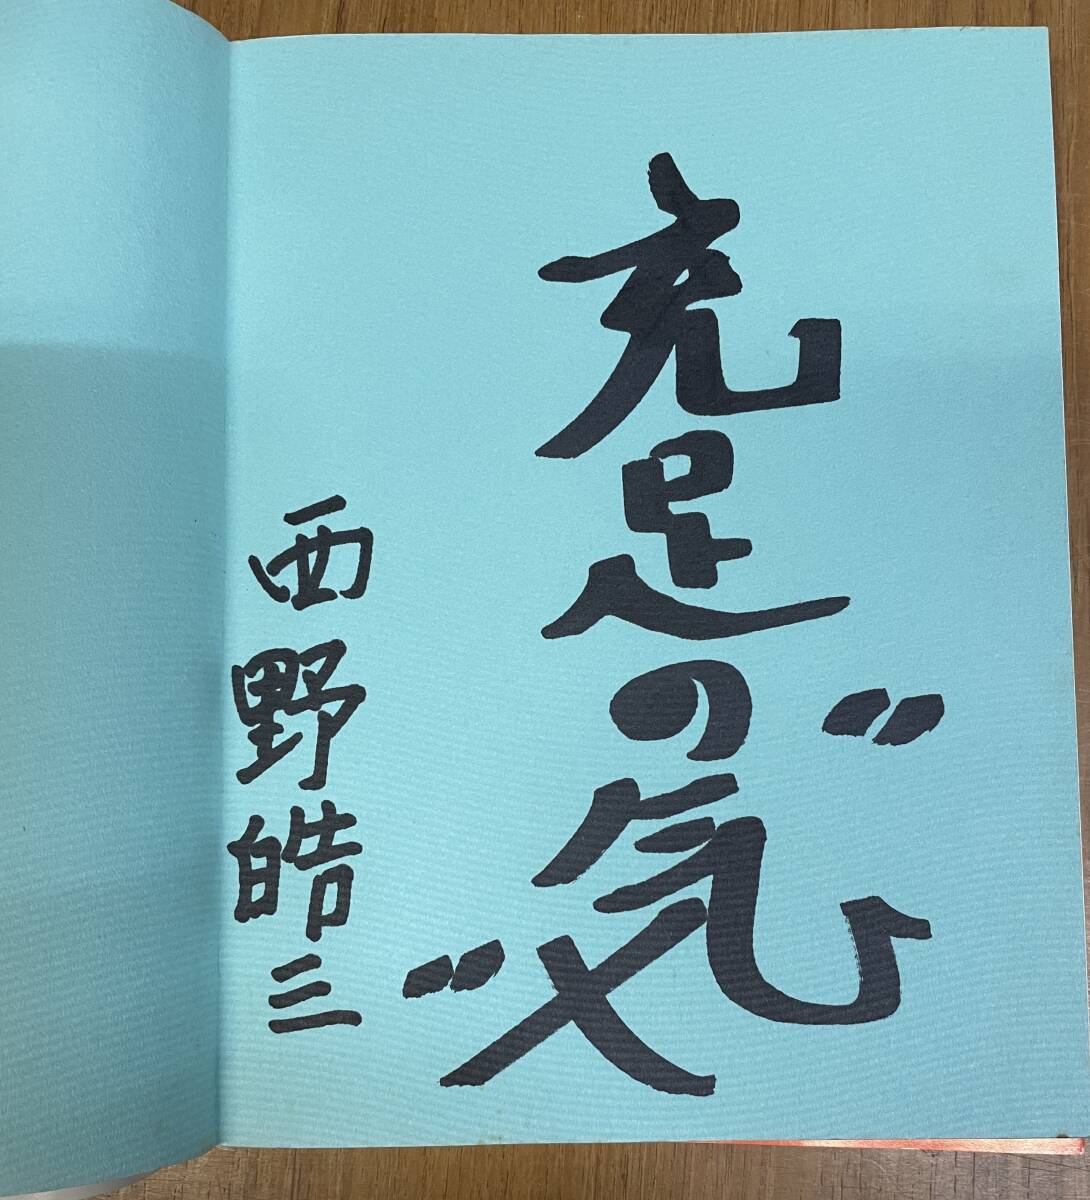 充足の〝気〟
西野皓三